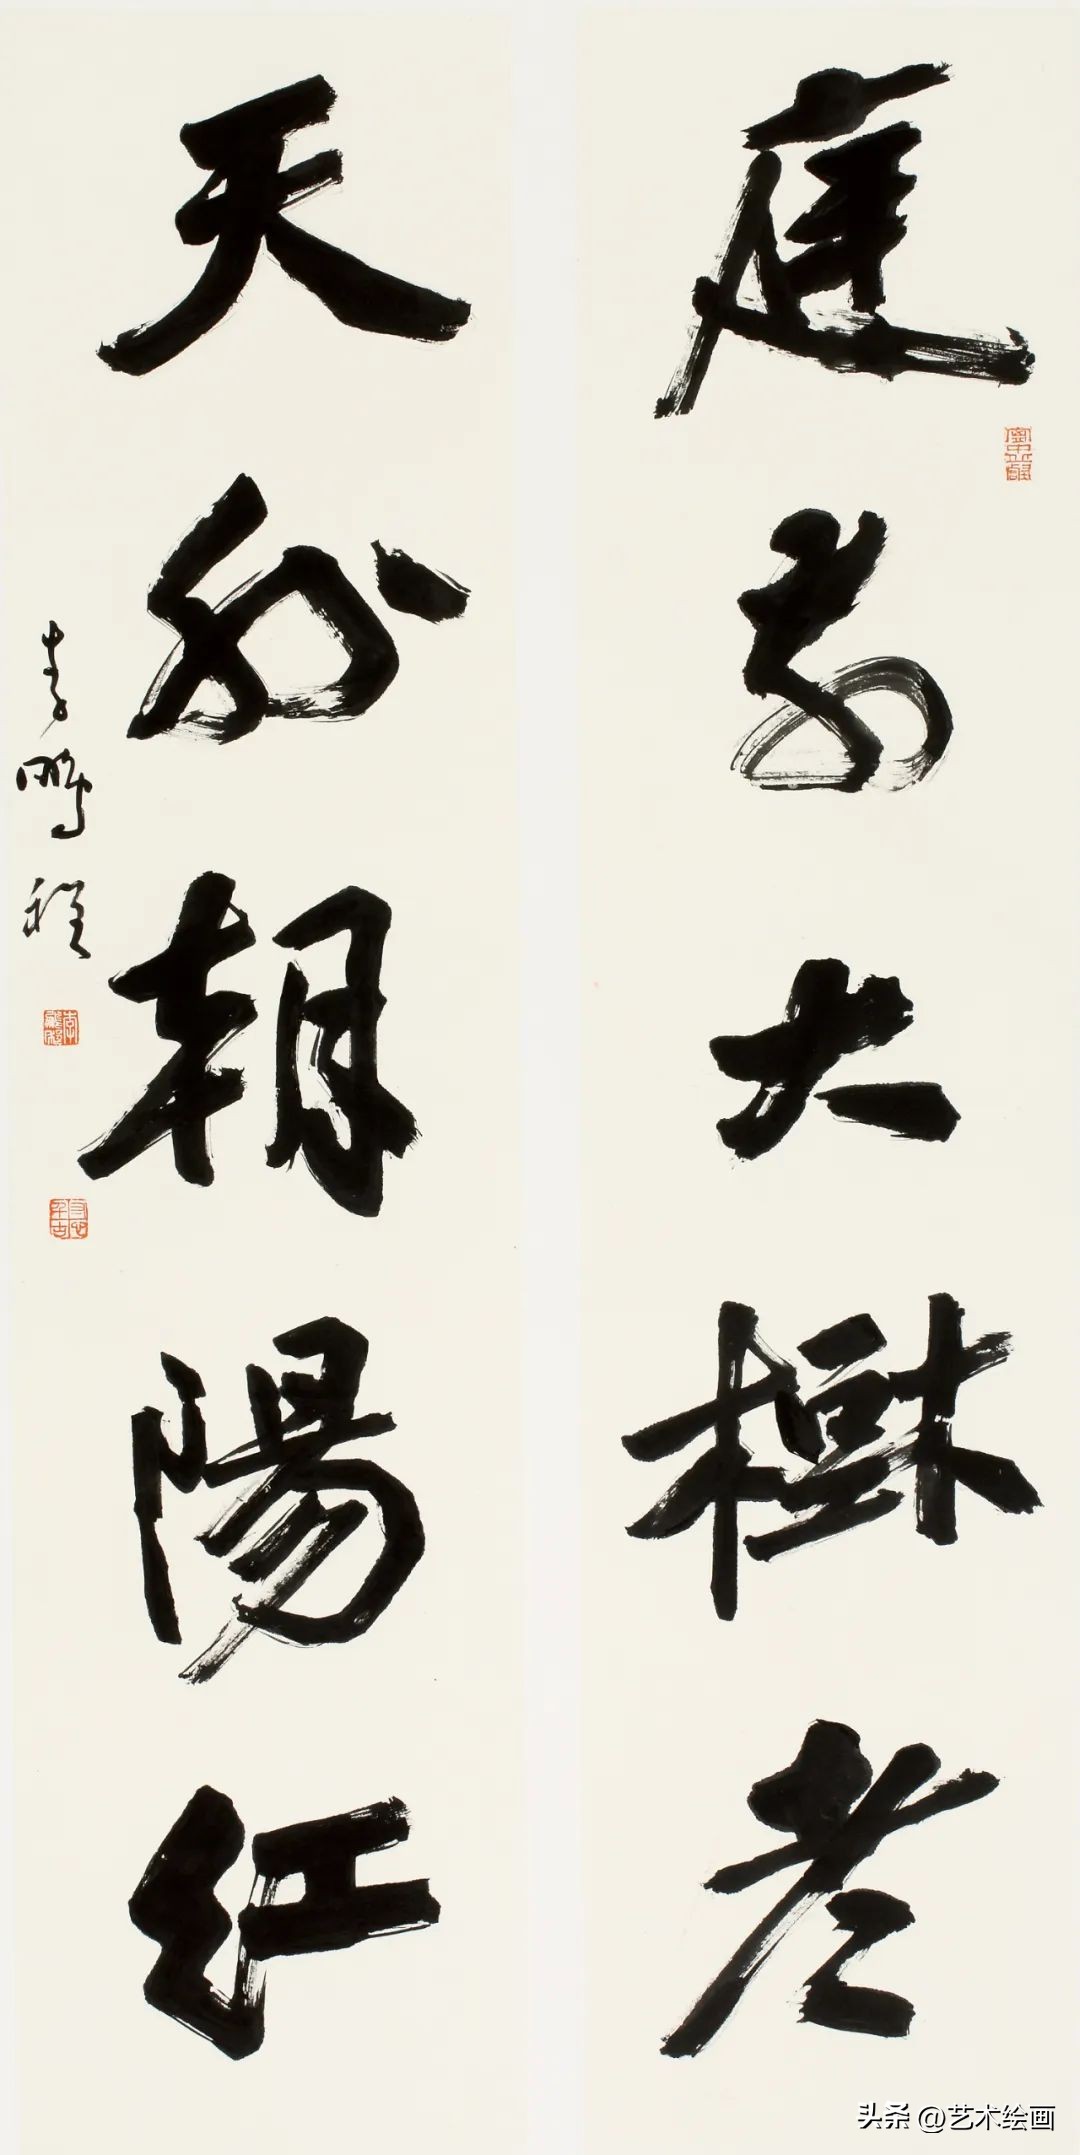 庭前大樹老
天外朝陽红
李鵬程
头条 @艺术绘画